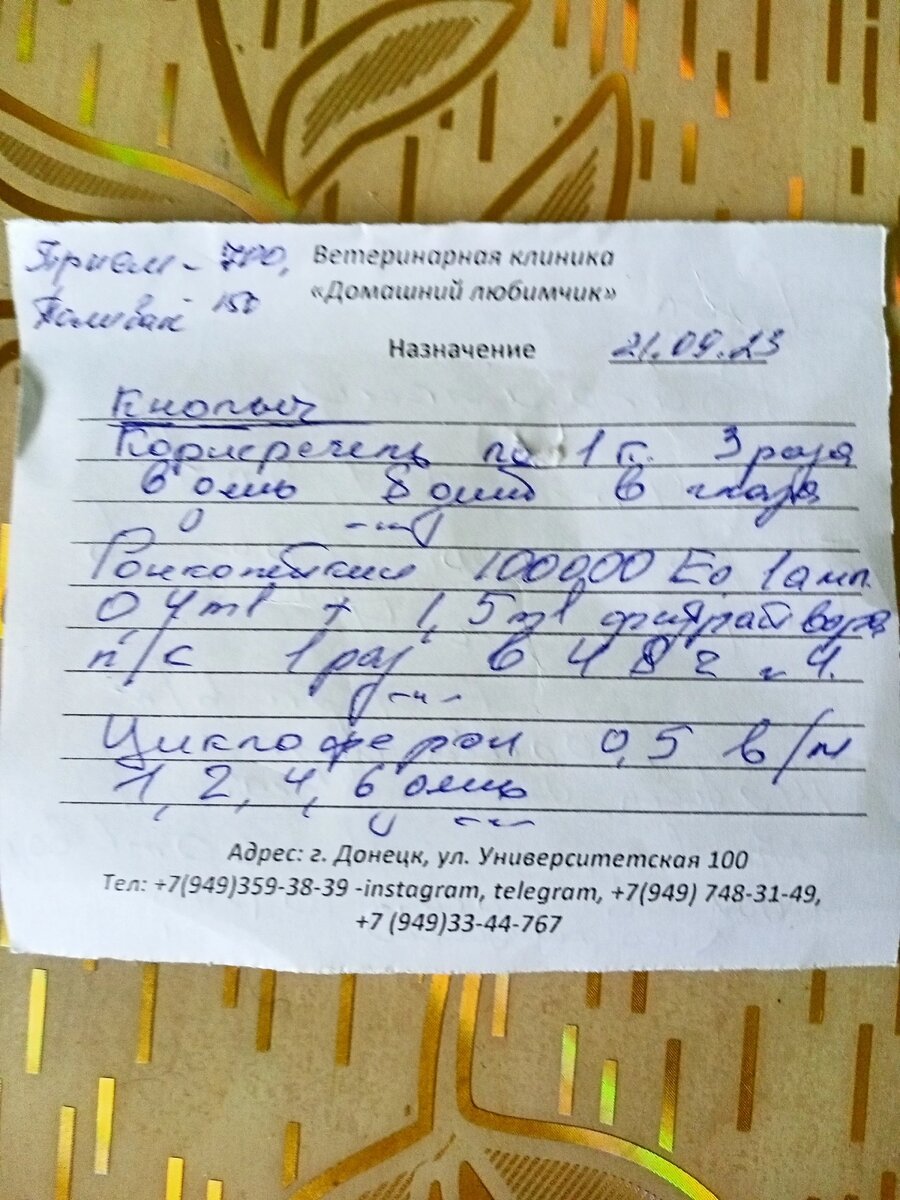 Прием - 700,
Ветеринарная клиника
150
«Домашний любимчик»
Назначение 21.09.23
Кнопыч
по 1 к. 3 раза
в день 8 дней в глаза
Ронколейкин 100000 Ед 1 амп.
0,4ml + 1,5ml физраствора
п/с 1 раз в 48 ч.
Циклоферон 0,5 в/м
1, 2, 4, 6 день
Адрес: г. Донецк, ул. Университетская 100
Тел: +7(949)359-38-39 -instagram, telegram, +7(949) 748-31-49,
+7 (949)33-44-767